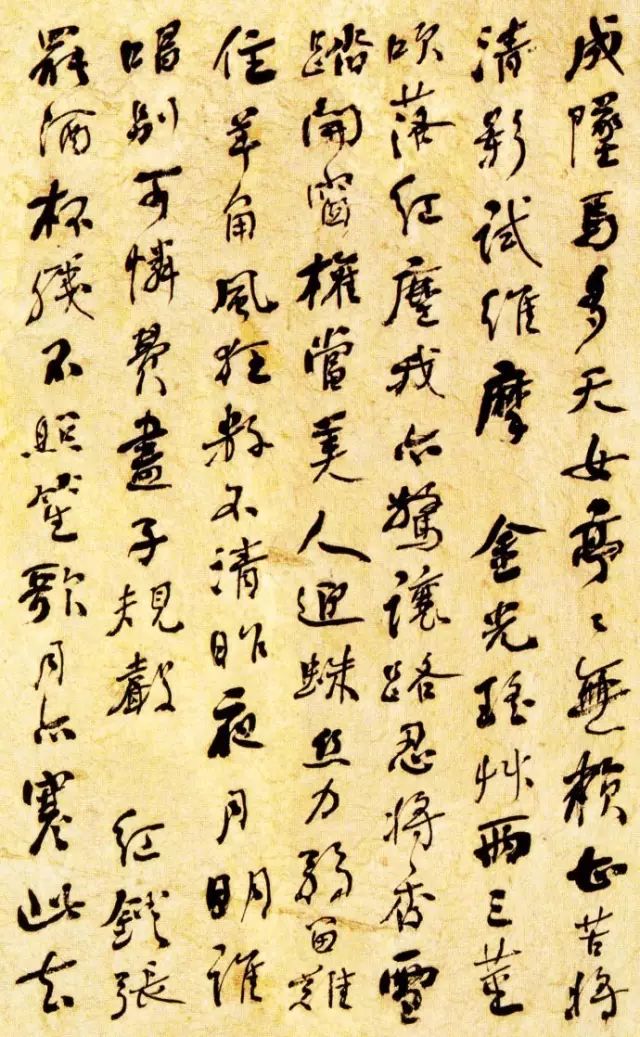 成墜馬多天女亭〻無賴甚苦將
清影試維摩 金光瑤艸兩三莖
吹落紅塵我亦驚讓路忍將香雪
踏開窗權當美人迎蛛絲力弱留難
住羊角風狂數不清昨夜月明誰
唱別可憐費盡子規聲 紅鐙張
罷酒杯殘不照笙歌月亦寒此去